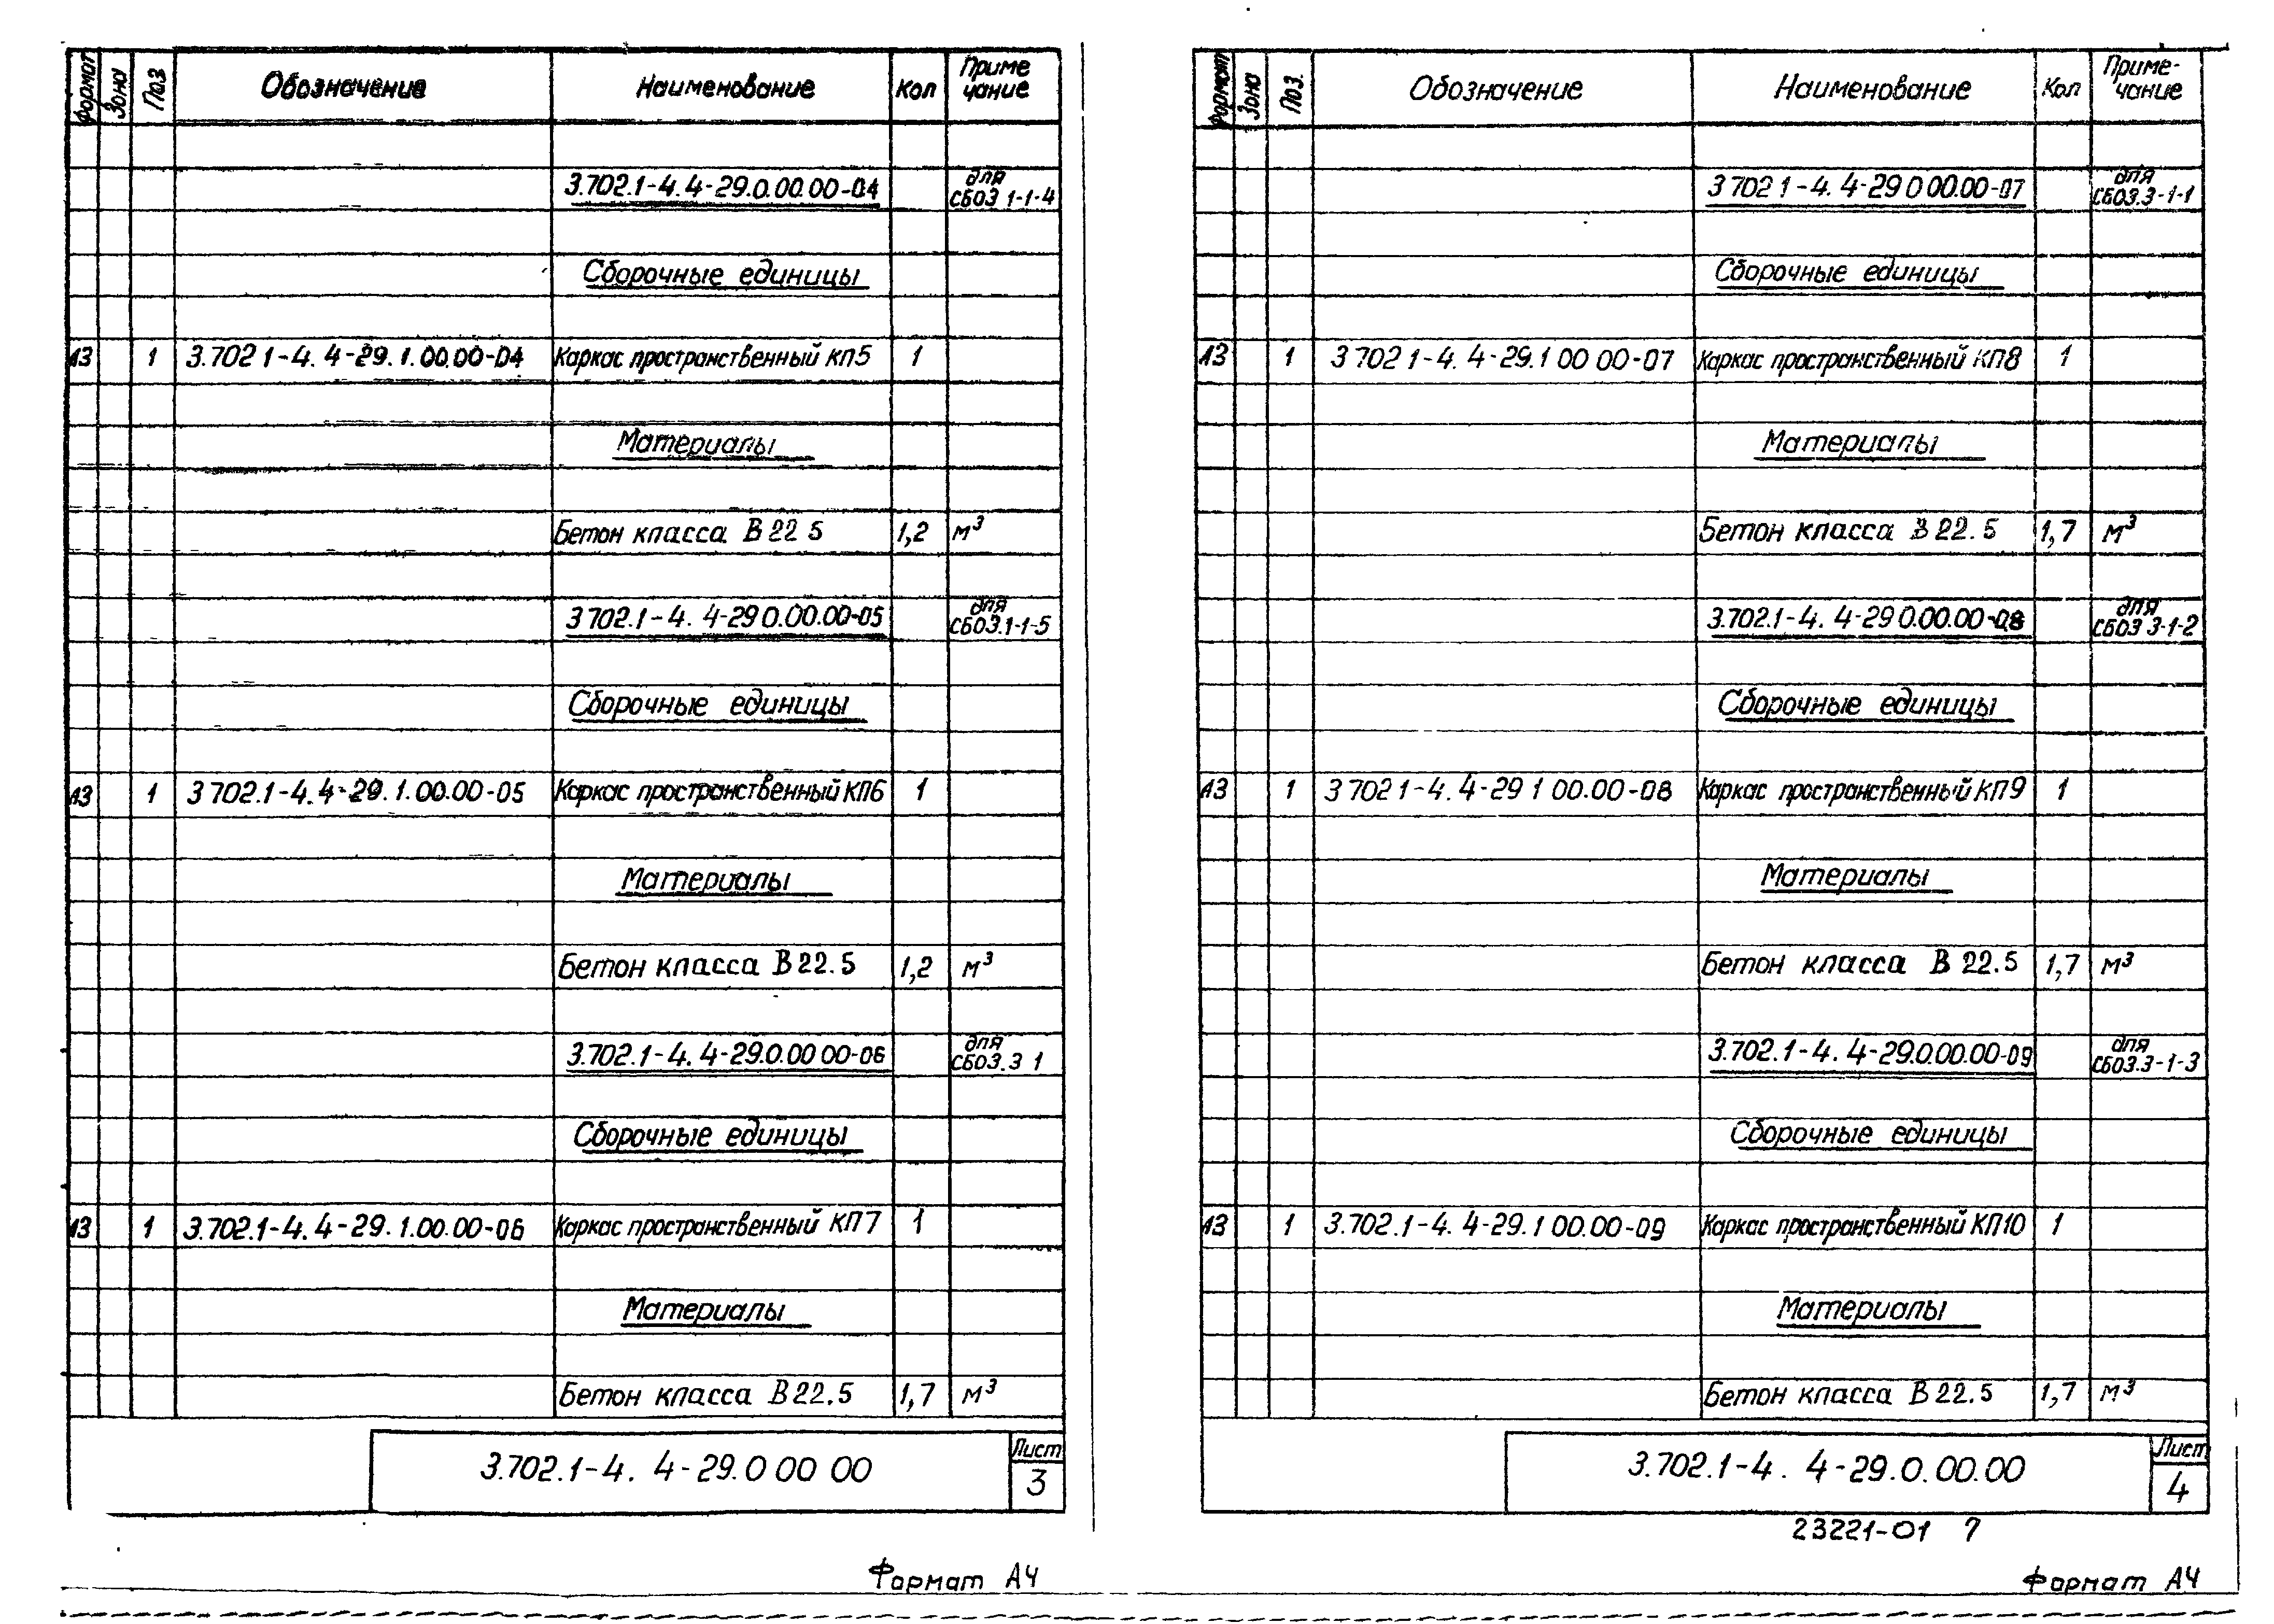 Формат Зона Поз Обозначение Наименование Кол Приме
чание
3.702.1-4.4-29.0.00.00-04 для
СБ03 1-1-4
Сборочные единицы
А3 1 3.702 1-4.4-29.1.00.00-04 Каркас пространственный КП5 1
Материалы
Бетон класса В 22 5 1,2 м³
3 702.1-4.4-29 0.00.00-05 для
СБ03.1-1-5
Сборочные единицы
А3 1 3 702.1-4.4-29.1.00.00-05 Каркас пространственный КП6 1
Материалы
Бетон класса В 22.5 1,2 м³
3.702.1-4.4-29.0.00 00-06 для
СБ03.3 1
Сборочные единицы
А3 1 3.702.1-4.4-29.1.00.00-06 Каркас пространственный КП7 1
Материалы
Бетон класса В 22.5 1,7 м³
3.702.1-4. 4-29.0 00 00 Лист
3
Формат А4
Формат Зона Поз. Обозначение Наименование Кол Приме-
чание
3 702 1-4.4-29 0 00.00-07 для
СБ03.3-1-1
Сборочные единицы
А3 1 3 702 1-4.4-29.1 00 00-07 Каркас пространственный КП8 1
Материалы
Бетон класса В 22.5 1,7 м³
3.702.1-4.4-29 0.00.00-08 для
СБ03 3-1-2
Сборочные единицы
А3 1 3 702 1-4.4-29 1 00.00-08 Каркас пространственный КП9 1
Материалы
Бетон класса В 22.5 1,7 м³
3.702.1-4.4-29.0.00.00-09 для
СБ03.3-1-3
Сборочные единицы
А3 1 3.702.1-4.4-29.1 00.00-09 Каркас пространственный КП10 1
Материалы
Бетон класса В 22.5 1,7 м³
3.702.1-4. 4-29.0.00.00 Лист
4
23221-01 7
Формат А4